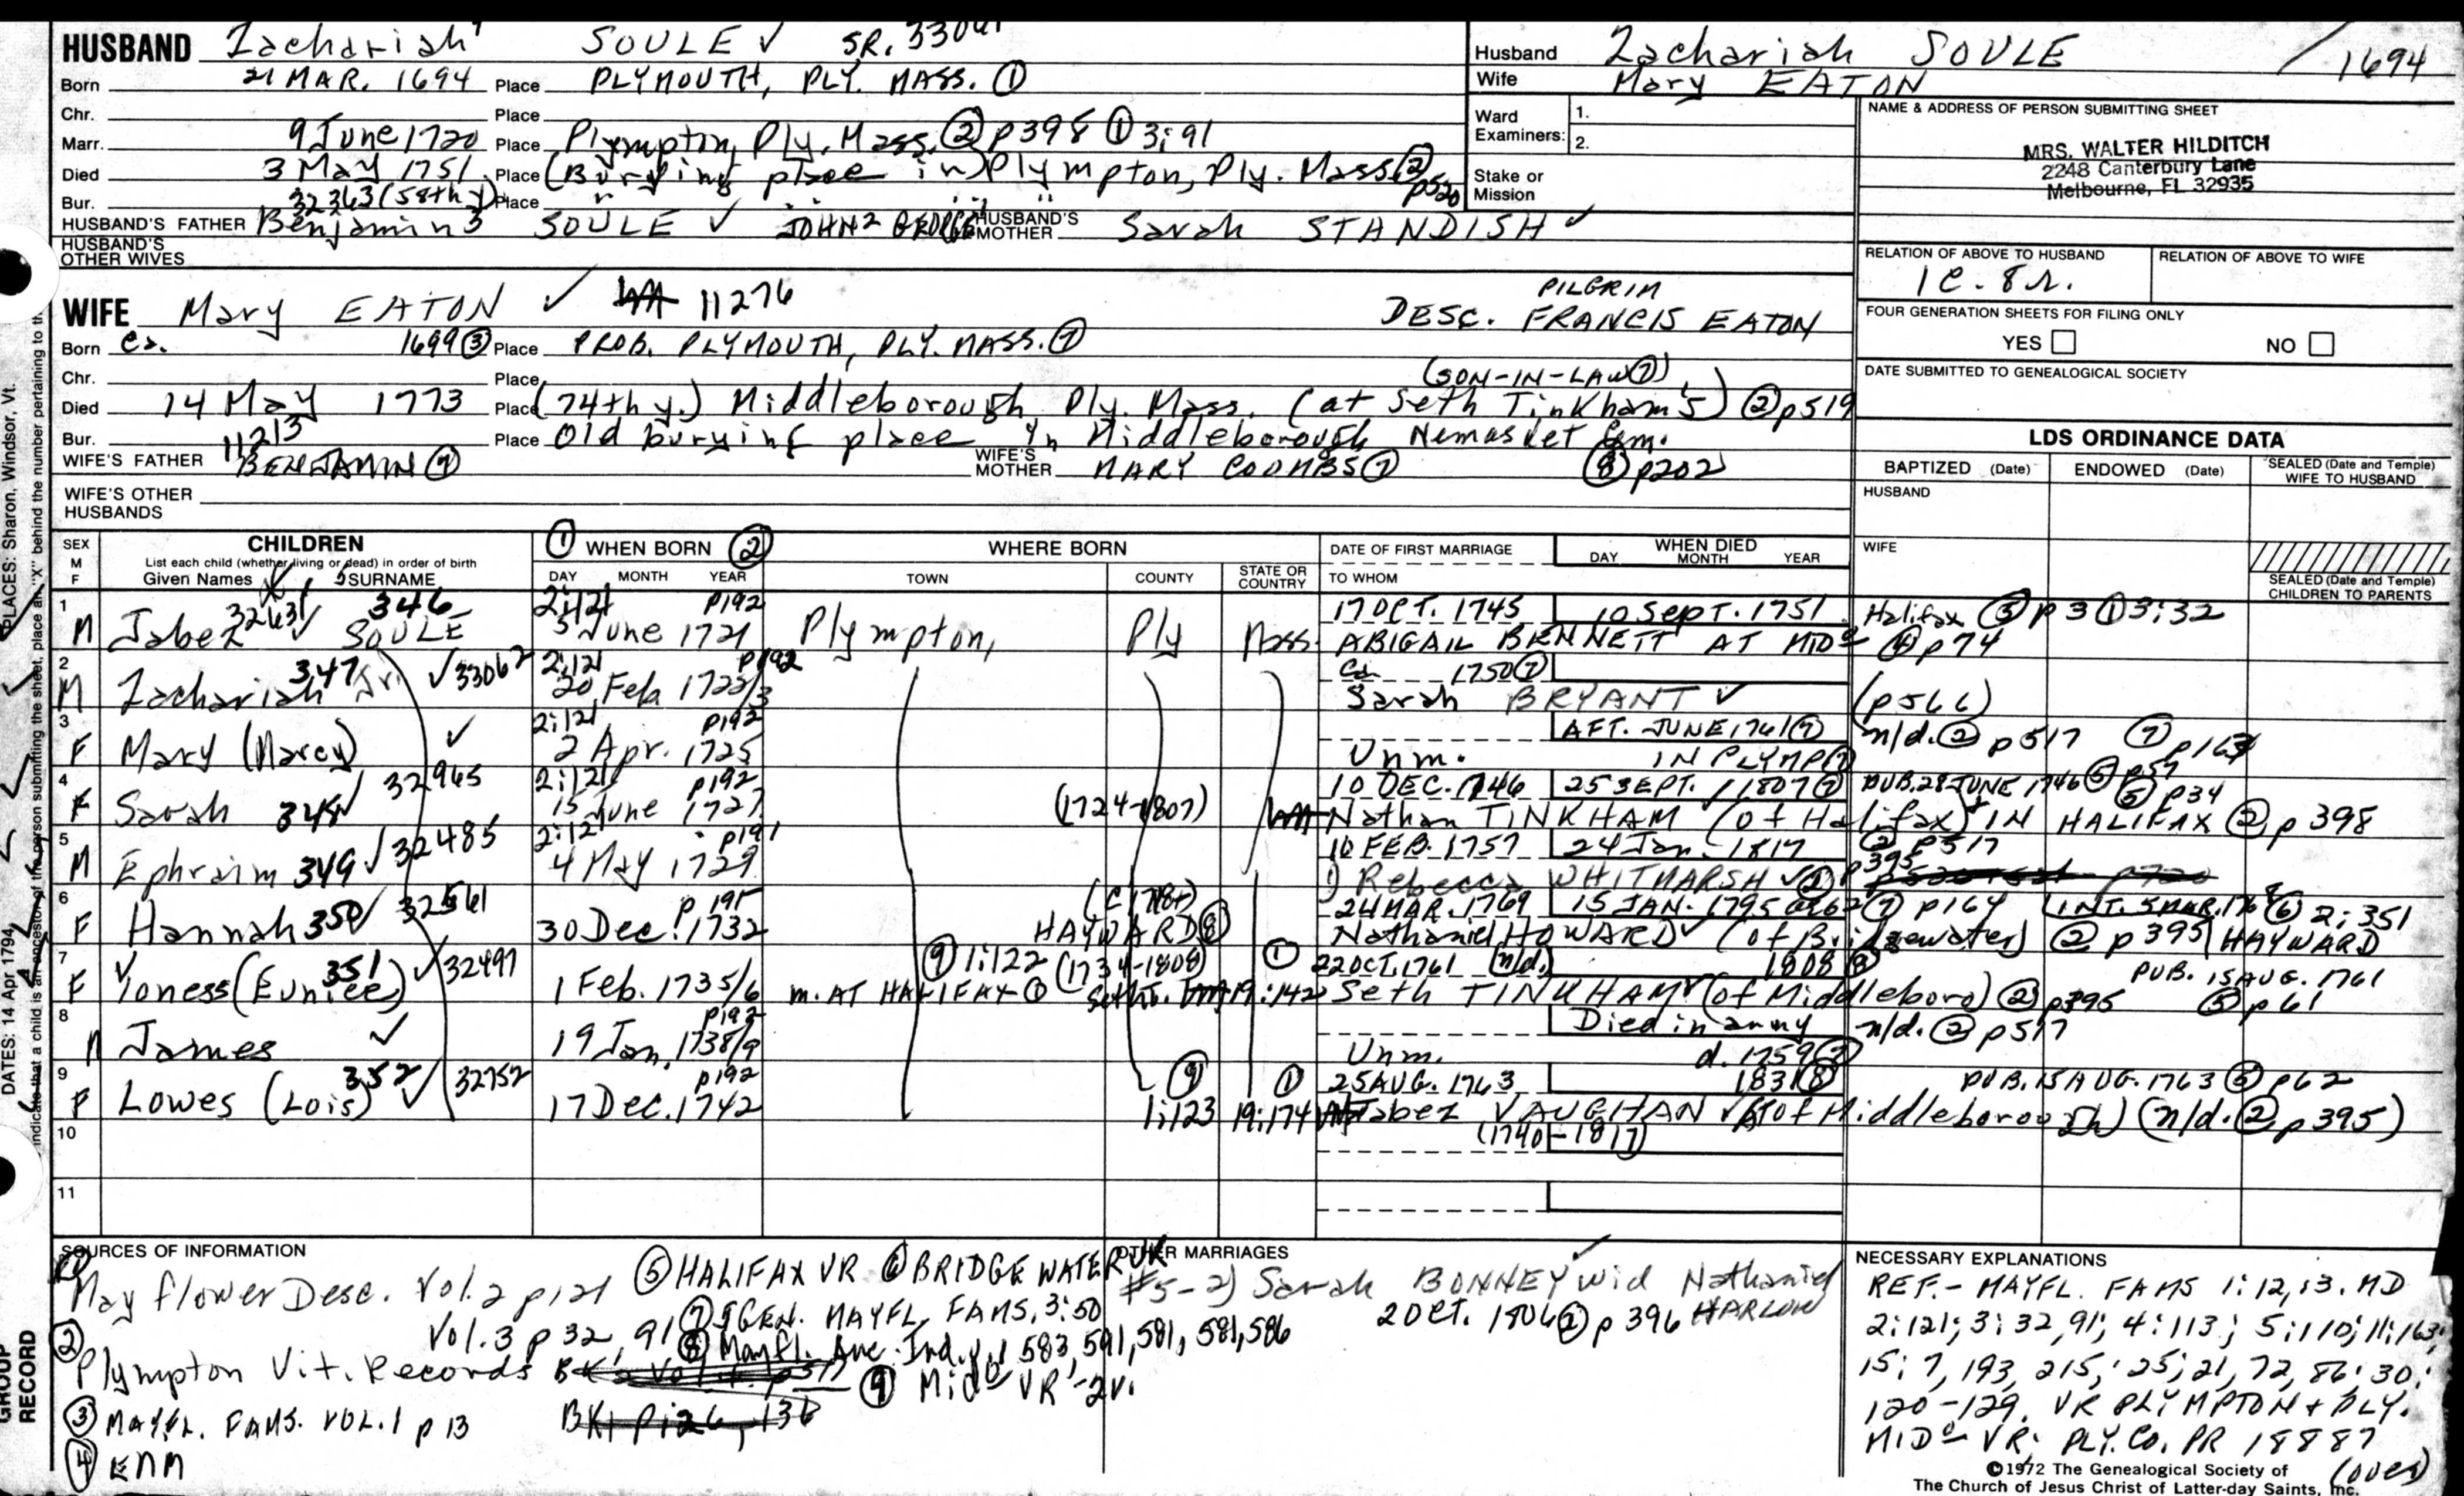 HUSBAND Zachariah SOULE ✓ SR.
Born 21 MAR. 1694 Place PLYMOUTH, PLY. MASS. ①
Chr. Place
Marr. 9 June 1720 Place Plympton, Ply. Mass. ② p398 ① 3:91
Died 3 May 1751 Place (Burying place in) Plympton, Ply. Mass ② p520
Bur. 32363 (58th y) Place " " " "
HUSBAND'S FATHER Benjamin3 SOULE ✓ JOHN2 GEORGE HUSBAND'S MOTHER Sarah STANDISH ✓
HUSBAND'S OTHER WIVES
Husband Zachariah SOULE / 1694
Wife Mary EATON
Ward Examiners: 1.
2.
Stake or Mission
NAME & ADDRESS OF PERSON SUBMITTING SHEET
MRS. WALTER HILDITCH
2248 Canterbury Lane
Melbourne, FL 32935
RELATION OF ABOVE TO HUSBAND RELATION OF ABOVE TO WIFE
1c. 8r.
FOUR GENERATION SHEETS FOR FILING ONLY
YES NO
DATE SUBMITTED TO GENEALOGICAL SOCIETY
WIFE Mary EATON ✓ 11276
PILGRIM
DESC. FRANCIS EATON
Born ca. 1699 ③ Place PROB. PLYMOUTH, PLY. MASS. ⑦
Chr. Place (SON-IN-LAW ⑦)
Died 14 May 1773 Place (74th y.) Middleborough Ply. Mass. (at Seth Tinkham's) ② p519
Bur. 11213 Place Old burying place in Middleborough Nemasket Cem.
WIFE'S FATHER BENJAMIN ⑦ WIFE'S MOTHER MARY COOMBS ⑦ ⑧ p202
WIFE'S OTHER HUSBANDS
LDS ORDINANCE DATA
BAPTIZED (Date) ENDOWED (Date) SEALED (Date and Temple) WIFE TO HUSBAND
HUSBAND
WIFE
SEALED (Date and Temple) CHILDREN TO PARENTS
SEX M F
CHILDREN
List each child (whether living or dead) in order of birth
Given Names SURNAME
① WHEN BORN ②
DAY MONTH YEAR
WHERE BORN
TOWN COUNTY STATE OR COUNTRY
DATE OF FIRST MARRIAGE
TO WHOM
WHEN DIED
DAY MONTH YEAR
1 346 2:121 p192 17 OCT. 1745 10 Sept. 1751 Halifax ⑤ p3 ① 3:32
M Jabez SOULE 5 June 1721 Plympton, Ply Mass. ABIGAIL BENNETT AT MIDº ④ p74
2 347 ✓ 33062 2:121 p192 Ca 1750 ⑦
M Zachariah Jr. 20 Feb. 1722/3 Sarah BRYANT ✓ (p566)
3 ✓ 2:121 p192 AFT. JUNE 1761 ⑦ n/d. ② p517 ⑦
F Mary (Marcy) 2 Apr. 1725 Unm. IN PLYMP ⑦
4 32965 2:121 p192 10 DEC. 1746 25 SEPT. 1807 ⑦ PUB. 28 JUNE 1746 ⑤ p57 ⑤ p34
F Sarah 348 15 June 1727 (1724-1807) Nathan TINKHAM (of Halifax) IN HALIFAX ② p398
5 2:121 p191 10 FEB. 1757 24 Jan. 1817 ② p517
M Ephraim 349 ✓ 32485 4 May 1729 1) Rebecca WHITMARSH ✓ ② p395
6 p191 24 MAR. 1769 15 JAN. 1795 ⑦ p164 ⑥ 2:351
F Hannah 350 ✓ 30 Dec. 1732 HAYWARD ⑧ Nathaniel HOWARD ✓ (of Bridgewater) ② p395 HAYWARD
7 351 ✓ 32497 ⑨ 1:122 (1734-1808) ① 22 OCT. 1761 (n/d.) 1808 ⑧ PUB. 15 AUG. 1761
F Yoness (Eunice) 1 Feb. 1735/6 m. AT HALIFAX ① 19:142 Seth TINKHAM ✓ (of Middleboro) ② p395 ⑤ p61
8 ✓ p192 Died in army n/d. ② p517
M James 19 Jan. 1738/9 Unm. d. 1759 ⑦
9 352 ✓ 32752 p192 ⑨ ① 25 AUG. 1763 1831 ⑧ PUB. 15 AUG. 1763 ⑤ p62
F Lowes (Lois) 17 Dec. 1742 1:123 19:174 Jabez VAUGHAN ✓ (of Middleborough) (n/d. ② p395)
10 (1740-1817)
11
SOURCES OF INFORMATION
① Mayflower Desc. Vol. 2 p121
Vol. 3 p 32, 91
② Plympton Vit. Records
③ MAYFL. FAMS. VOL. 1 p 13
④ ENM
⑤ HALIFAX VR ⑥ BRIDGEWATER VR
⑦ 5 GEN. MAYFL. FAMS. 3:50
⑧ Mayfl. Anc. Ind. 583, 591, 581, 581, 586
⑨ Midº VR - 2v.
OTHER MARRIAGES
#5-2) Sarah BONNEY wid Nathaniel HARLOW
2 OCT. 1806 ② p 396
NECESSARY EXPLANATIONS
REF. - MAYFL. FAMS 1:12, 13. MD
2:121; 3:32, 91; 4:113; 5:110; 11:163;
15:7, 193, 215; 25:21, 72, 86; 30:
120-129. VR PLYMPTON + PLY.
MIDº VR; PLY. CO. PR 18887
(over)
©1972 The Genealogical Society of
The Church of Jesus Christ of Latter-day Saints, Inc.
PLACES: Sharon, Windsor, Vt.
DATES: 14 Apr 1794
indicate that a child is an ancestor of the person submitting the sheet, place an "X" behind the number pertaining to th
GROUP RECORD